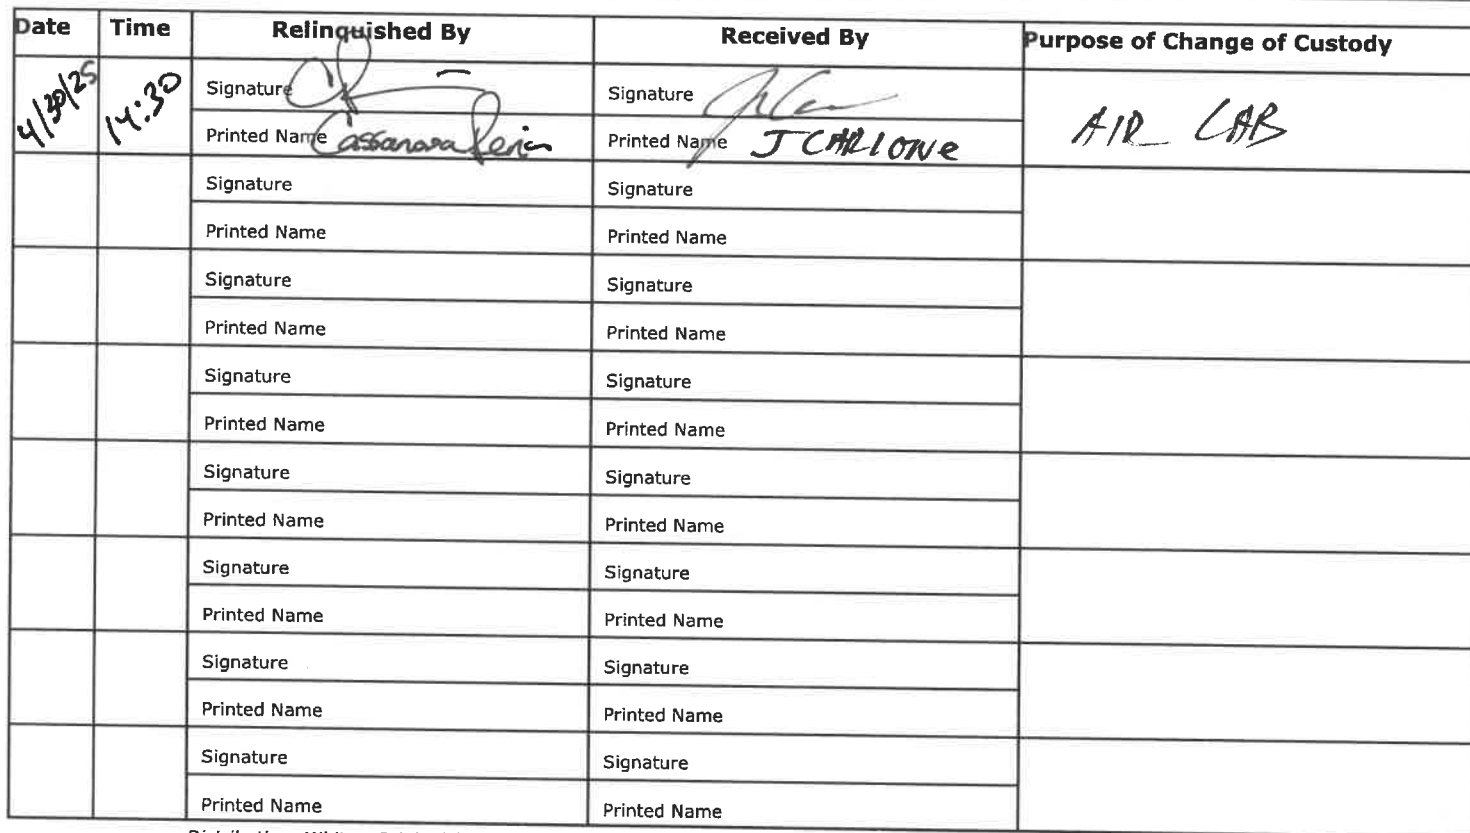 Date Time Relinquished By Received By Purpose of Change of Custody
4/30/25 14:30 Signature Signature AIR LAB
Printed Name Cassanara Printed Name J CARLONE
Signature Signature
Printed Name Printed Name
Signature Signature
Printed Name Printed Name
Signature Signature
Printed Name Printed Name
Signature Signature
Printed Name Printed Name
Signature Signature
Printed Name Printed Name
Signature Signature
Printed Name Printed Name
Signature Signature
Printed Name Printed Name